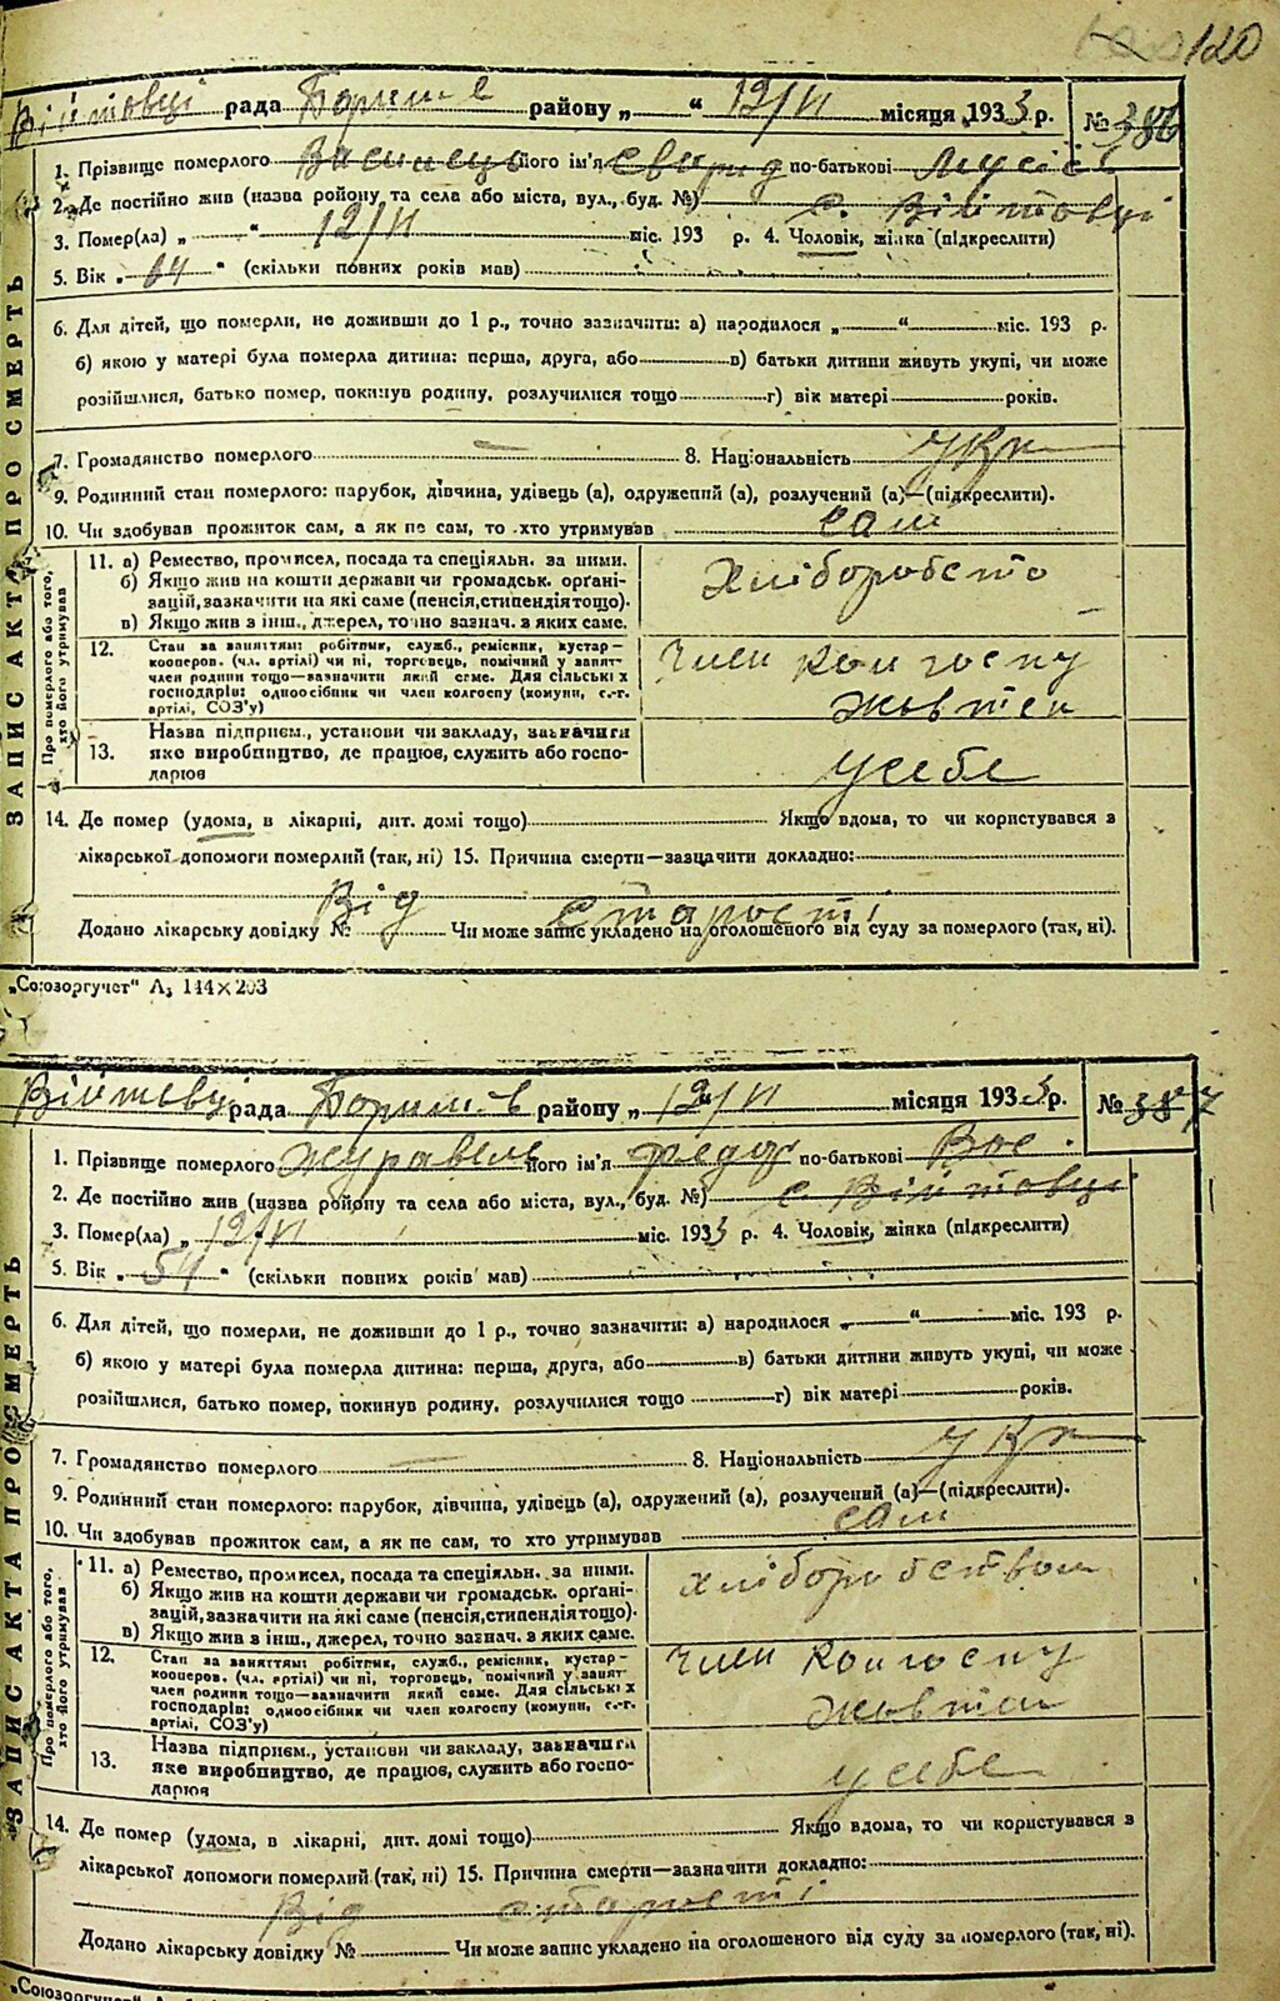 120
Війтовці рада Бориш в району „ “ 12/VI місяця 1933 р. № 386
1. Прізвище померлого Василець його ім'я по-батькові Мусій
2. Де постійно жив (назва району та села або міста, вул., буд. №) с. Війтовці
3. Помер(ла) „ “ 12/VI міс. 193 р. 4. Чоловік, жінка (підкреслити)
5. Вік „ 64 “ (скільки повних років мав)
6. Для дітей, що померли, не доживши до 1 р., точно зазначити: а) народилося „ “ міс. 193 р.
б) якою у матері була померла дитина: перша, друга, або в) батьки дитини живуть укупі, чи може
розійшлися, батько помер, покинув родину, розлучилися тощо г) вік матері років.
7. Громадянство померлого — 8. Національність Укр
9. Родинний стан померлого: парубок, дівчина, удівець (а), одружений (а), розлучений (а)—(підкреслити).
10. Чи здобував прожиток сам, а як не сам, то хто утримував сам
ЗАПИС АКТА ПРО СМЕРТЬ
Про померлого або того, хто його утримував
11. а) Ремество, промисел, посада та спеціяльн. за ними.
б) Якщо жив на кошти держави чи громадськ. орґані-
зацій, зазначити на які саме (пенсія, стипендія тощо).
в) Якщо жив з інш., джерел, точно зазнач. з яких саме.
Хліборобсто
12. Стан за заняттям: робітник, служб., ремісник, кустар-
кооперов. (чл. артілі) чи ні, торговець, помічний у занят-
член родини тощо—зазначити який саме. Для сільських
господарів: одноосібник чи член колгоспу (комуни, с.-г.
артілі, СОЗ'у)
Член колгоспу
Жовтен
13. Назва підприєм., установи чи закладу, зазначити
яке виробництво, де працює, служить або госпо-
дарює
у себе
14. Де помер (удома, в лікарні, дит. домі тощо) Якщо вдома, то чи користувався з
лікарської допомоги померлий (так, ні) 15. Причина смерти—зазначити докладно:
Від старості
Додано лікарську довідку № Чи може запис укладено на оголошеного від суду за померлого (так, ні).
„Союзоргучет“ А5 144×203
Війтовці рада Бориш-в району „ 12/VI “ місяця 1933 р. № 387
1. Прізвище померлого Журавель його ім'я Федор по-батькові Вас.
2. Де постійно жив (назва району та села або міста, вул., буд. №) с Війтовці
3. Помер(ла) „ 12/VI міс. 1933 р. 4. Чоловік, жінка (підкреслити)
5. Вік „ 54 “ (скільки повних років мав)
6. Для дітей, що померли, не доживши до 1 р., точно зазначити: а) народилося „ “ міс. 193 р.
б) якою у матері була померла дитина: перша, друга, або в) батьки дитини живуть укупі, чи може
розійшлися, батько помер, покинув родину, розлучилися тощо г) вік матері років.
7. Громадянство померлого — 8. Національність Укр
9. Родинний стан померлого: парубок, дівчина, удівець (а), одружений (а), розлучений (а)—(підкреслити).
10. Чи здобував прожиток сам, а як не сам, то хто утримував сам
ЗАПИС АКТА ПРО СМЕРТЬ
Про померлого або того, хто його утримував
11. а) Ремество, промисел, посада та спеціяльн. за ними.
б) Якщо жив на кошти держави чи громадськ. орґані-
зацій, зазначити на які саме (пенсія, стипендія тощо).
в) Якщо жив з інш., джерел, точно зазнач. з яких саме.
Хліборобством
12. Стан за заняттям: робітник, служб., ремісник, кустар-
кооперов. (чл. артілі) чи ні, торговець, помічний у занят-
член родини тощо—зазначити який саме. Для сільських
господарів: одноосібник чи член колгоспу (комуни, с.-г.
артілі, СОЗ'у)
Член колгоспу
Жовтен
13. Назва підприєм., установи чи закладу, зазначити
яке виробництво, де працює, служить або госпо-
дарює
у себе
14. Де помер (удома, в лікарні, дит. домі тощо) Якщо вдома, то чи користувався з
лікарської допомоги померлий (так, ні) 15. Причина смерти—зазначити докладно:
Від старості
Додано лікарську довідку № Чи може запис укладено на оголошеного від суду за померлого (так, ні).
„Союзоргучет“